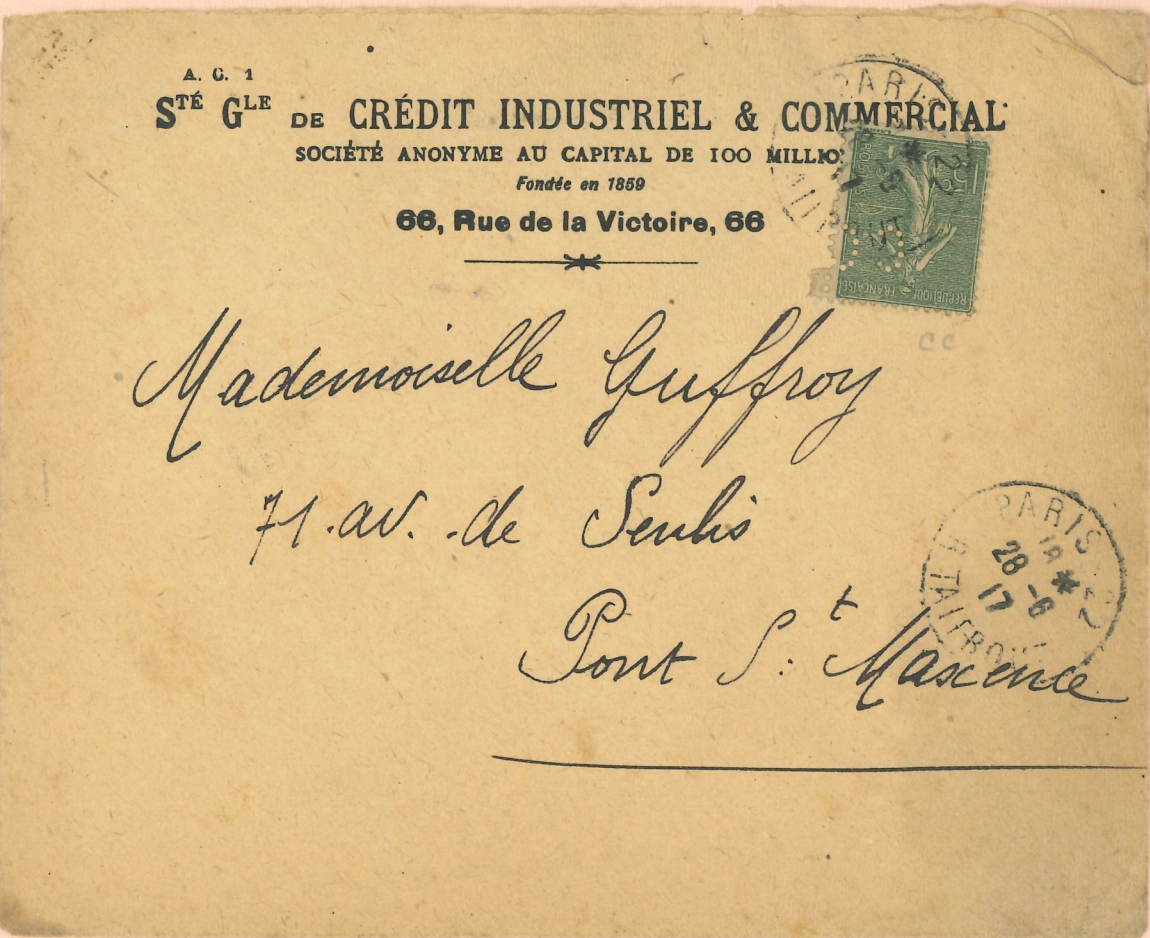 A. C. 1
STÉ GLE DE CRÉDIT INDUSTRIEL & COMMERCIAL
SOCIÉTÉ ANONYME AU CAPITAL DE 100 MILLIO
Fondée en 1859
66, Rue de la Victoire, 66
PARIS 22
RÉPUBLIQUE FRANÇAISE
CC
Mademoiselle Guffroy
71. av. de Senlis
Pont St. Maxence
PARIS 22
R. TAITBOUT
18 *
28 -6
17